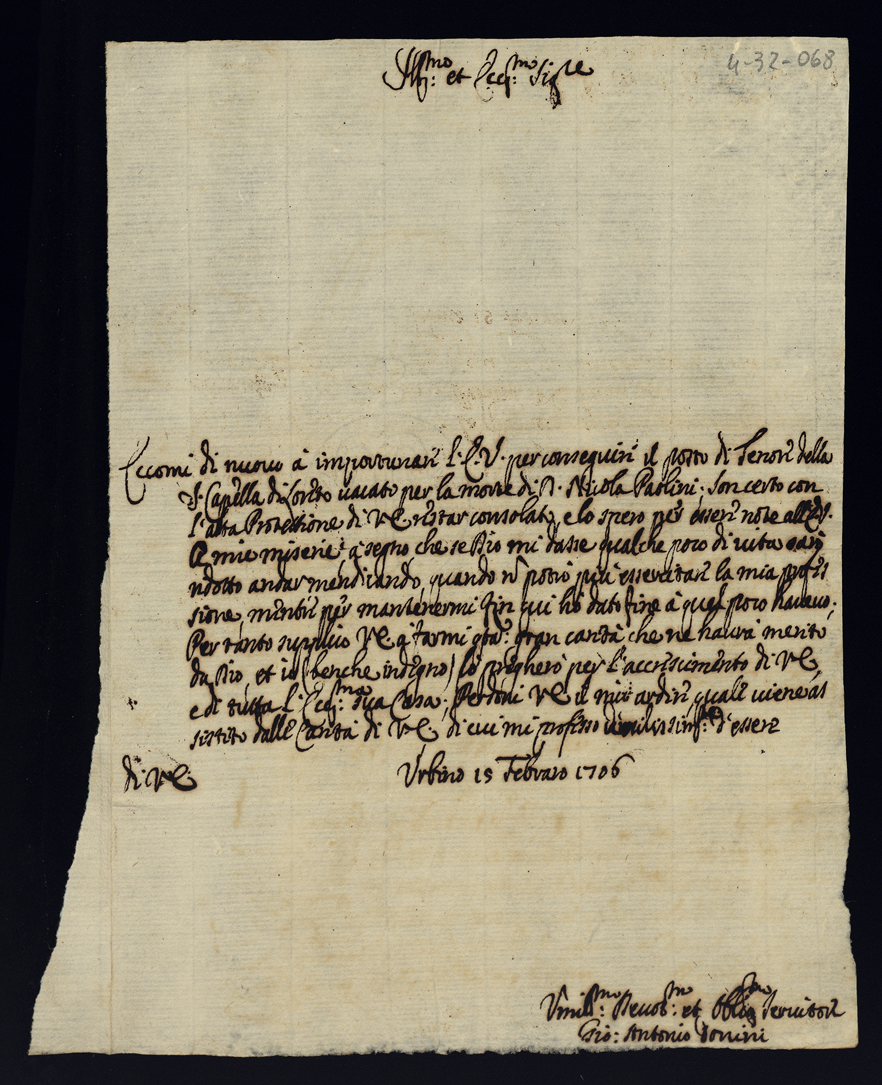 4-32-068
Ill:mo et Ecc:mo Sig.re
Eccomi di nuovo à importunare l'E.V. per conseguire il posto di Tenore della
S. Capella di Loreto vacato per la morte di D. Nicola Paolini; son certo con
l'alta Protettione di VE restar consolato, e lo spero per esser note all'E.V.
le mie miserie, à segno che se Dio mi dasse qualche poco di vita sarei
ridotto andar mendicando, quando nõ potrò più essercitare la mia profes
sione, mentre per mantenermi fin qui hò dato fine à quel poco havevo;
Per tanto supplico VE à farmi q.ta gran carità che ne haverà merito
da Dio, et io (benche indegno) lo pregherò per l'accrescimento di VE,
e di tutta l'Ecc:ma sua Casa; Perdoni VE il mio ardire quale viene as
sistito dalla Carità di VE. di cui mi professo d'essere
di VE. Urbino 15 Febraro 1706
Umil:mo Devot:mo et Oblig:mo Servitore
Gio: Antonio Donini